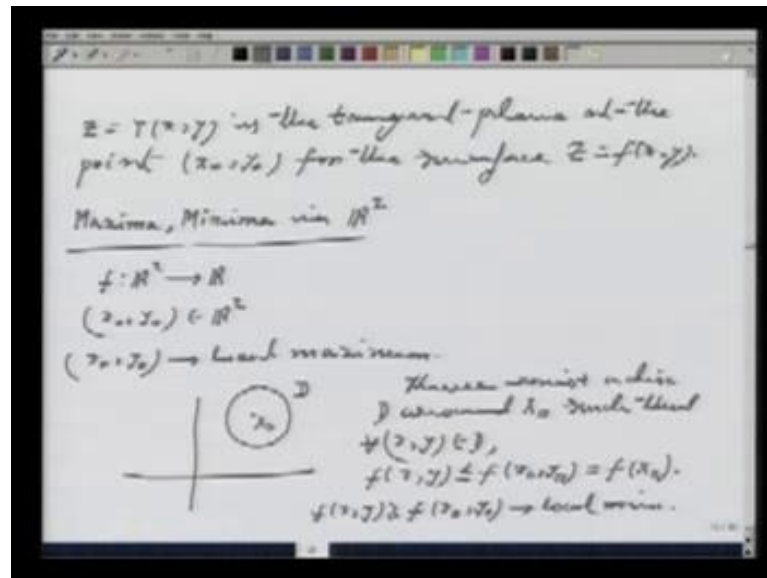 z = T(x, y) is the tangent-plane at the
point (x₀, y₀) for the surface z = f(x, y).
Maxima, Minima in ℝ²
f : ℝ² → ℝ
(x₀, y₀) ∈ ℝ²
(x₀, y₀) → local maximum.
D
x₀
there exist a disc
D around x₀ such that
∀(x, y) ∈ D,
f(x, y) ≤ f(x₀, y₀) = f(x₀).
f(x, y) ≥ f(x₀, y₀) → local min.